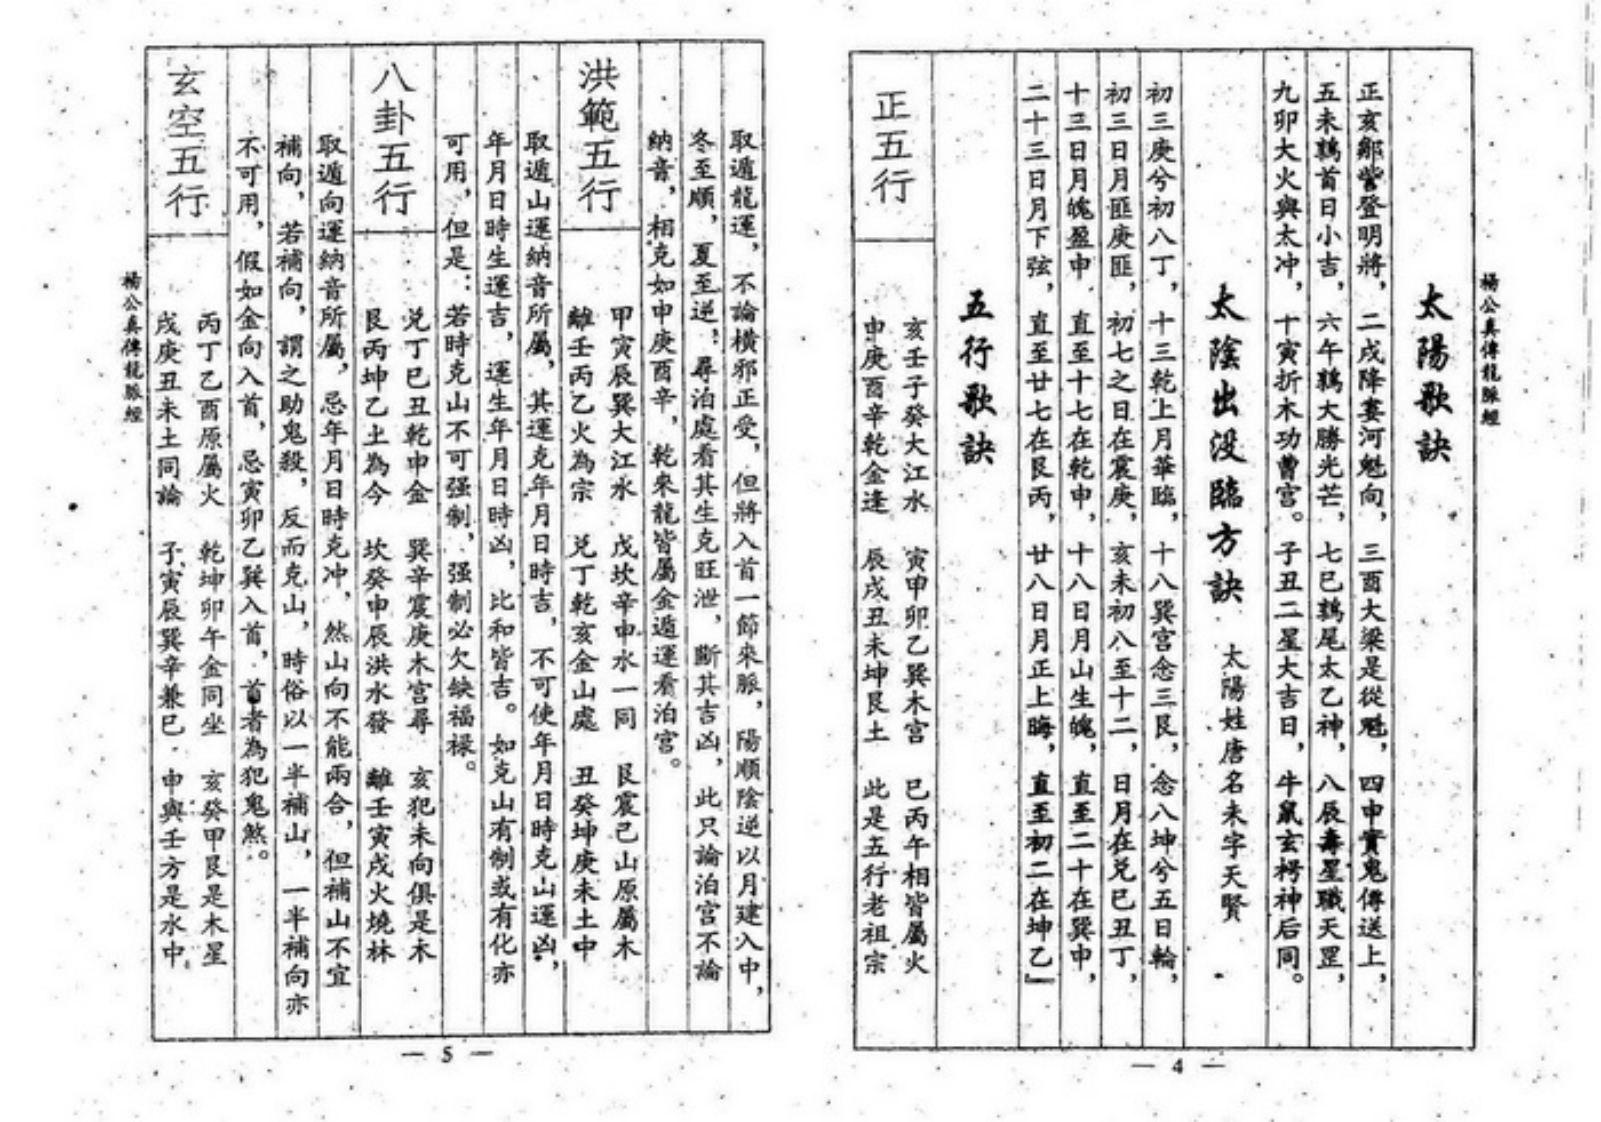 楊公真傳龍脈經
太陽歌訣
正亥鄒訾登明將，二戌降婁河魁向，三酉大梁是從魁，四申實鬼傳送上，
五未鶉首日小吉，六午鶉大勝光芒，七巳鶉尾太乙神，八辰壽星職天罡，
九卯大火與太冲，十寅折木功曹宮。子丑二星大吉日，牛鼠玄枵神后同。
太陰出没臨方訣 太陽姓唐名未字天賢
初三庚兮初八丁，十三乾上月華臨，十八巽宮念三艮，念八坤兮五日輪，
初三日月匪庚匪，初七之日在震庚，亥未初八至十二，日月在兌巳丑丁，
十三日月魄盈申，直至十七在乾申，十八日月山生魄，直至二十在巽申，
二十三日月下弦，直至廿七在艮丙，廿八日月正上晦，直至初二在坤乙」
五行歌訣
正五行
亥壬子癸大江水 寅甲卯乙巽木宮 巳丙午相皆屬火
申庚酉辛乾金逢 辰戌丑未坤艮土 此是五行老祖宗
— 4 —
取遁龍運，不論橫邪正受，但將入首一節來脈，陽順陰逆以月建入中，
冬至順，夏至逆，尋泊處看其生克旺泄，斷其吉凶，此只論泊宮不論
納音，相克如申庚酉辛，乾來龍皆屬金遁運看泊宮。
洪範五行
甲寅辰巽大江水 戊坎辛申水一同 艮震己山原屬木
離壬丙乙火為宗 兌丁乾亥金山處 丑癸坤庚未土中
取遁山運納音所屬，其運克年月日時吉，不可使年月日時克山運凶，
年月日時生運吉，運生年月日時凶，比和皆吉。如克山有制或有化亦
可用，但是：若時克山不可强制，强制必欠缺福禄。
八卦五行
兌丁巳丑乾申金 巽辛震庚木宮尋 亥犯未向俱是木
艮丙坤乙土為今 坎癸申辰洪水發 離壬寅戌火燒林
取遁向運納音所屬，忌年月日時克冲，然山向不能兩合，但補山不宜
補向，若補向，謂之助鬼殺，反而克山，時俗以一半補山，一半補向亦
不可用，假如金向入首，忌寅卯乙巽入首，首者為犯鬼煞。
玄空五行
丙丁乙酉原屬火 乾坤卯午金同坐 亥癸甲艮是木星
戌庚丑未土同論 子寅辰巽辛兼巳 申與壬方是水中
楊公真傳龍脈經
— 5 —